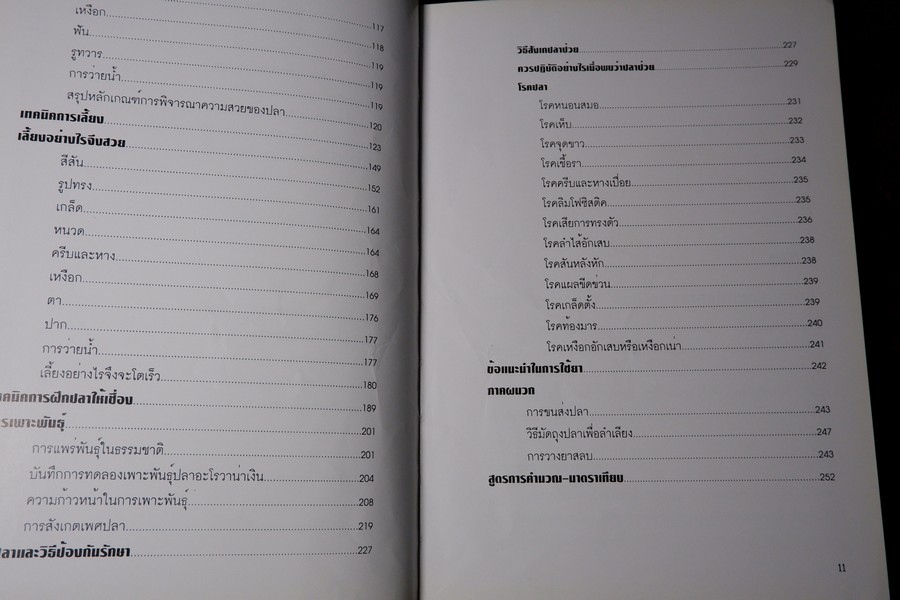 เหงือก 117
ฟัน 118
รูทวาร 119
การว่ายน้ำ 119
สรุปหลักเกณฑ์การพิจารณาความสวยของปลา 119
เทคนิคการเลี้ยง 120
เลี้ยงอย่างไรจึงสวย 123
สีสัน 149
รูปทรง 152
เกล็ด 161
หนวด 164
ครีบและหาง 164
เหงือก 168
ตา 169
ปาก 176
การว่ายน้ำ 177
เลี้ยงอย่างไรจึงจะโตเร็ว 177
180
คนิคการฝึกปลาให้เชื่อง 189
รเพาะพันธุ์ 201
การแพร่พันธุ์ในธรรมชาติ 201
บันทึกการทดลองเพาะพันธุ์ปลาอะโรวาน่าเงิน 204
ความก้าวหน้าในการเพาะพันธุ์ 208
การสังเกตเพศปลา 219
ปลาและวิธีป้องกันรักษา 227
วิธีสังเกตปลาป่วย 227
ควรปฏิบัติอย่างไรเมื่อพบว่าปลาป่วย 229
โรคปลา
โรคหนอนสมอ 231
โรคเห็บ 232
โรคจุดขาว 233
โรคเชื้อรา 234
โรคครีบและหางเปื่อย 235
โรคลิมโฟซิสติค 235
โรคเสียการทรงตัว 236
โรคลำไส้อักเสบ 238
โรคสันหลังหัก 238
โรคแผลขีดข่วน 239
โรคเกล็ดตั้ง 239
โรคท้องมาร 240
โรคเหงือกอักเสบหรือเหงือกเน่า 241
ข้อแนะนำในการใช้ยา 242
ภาคผนวก
การขนส่งปลา 243
วิธีมัดถุงปลาเพื่อลำเลียง 247
การวางยาสลบ 243
สูตรการคำนวณ-มาตราเทียบ 252
11